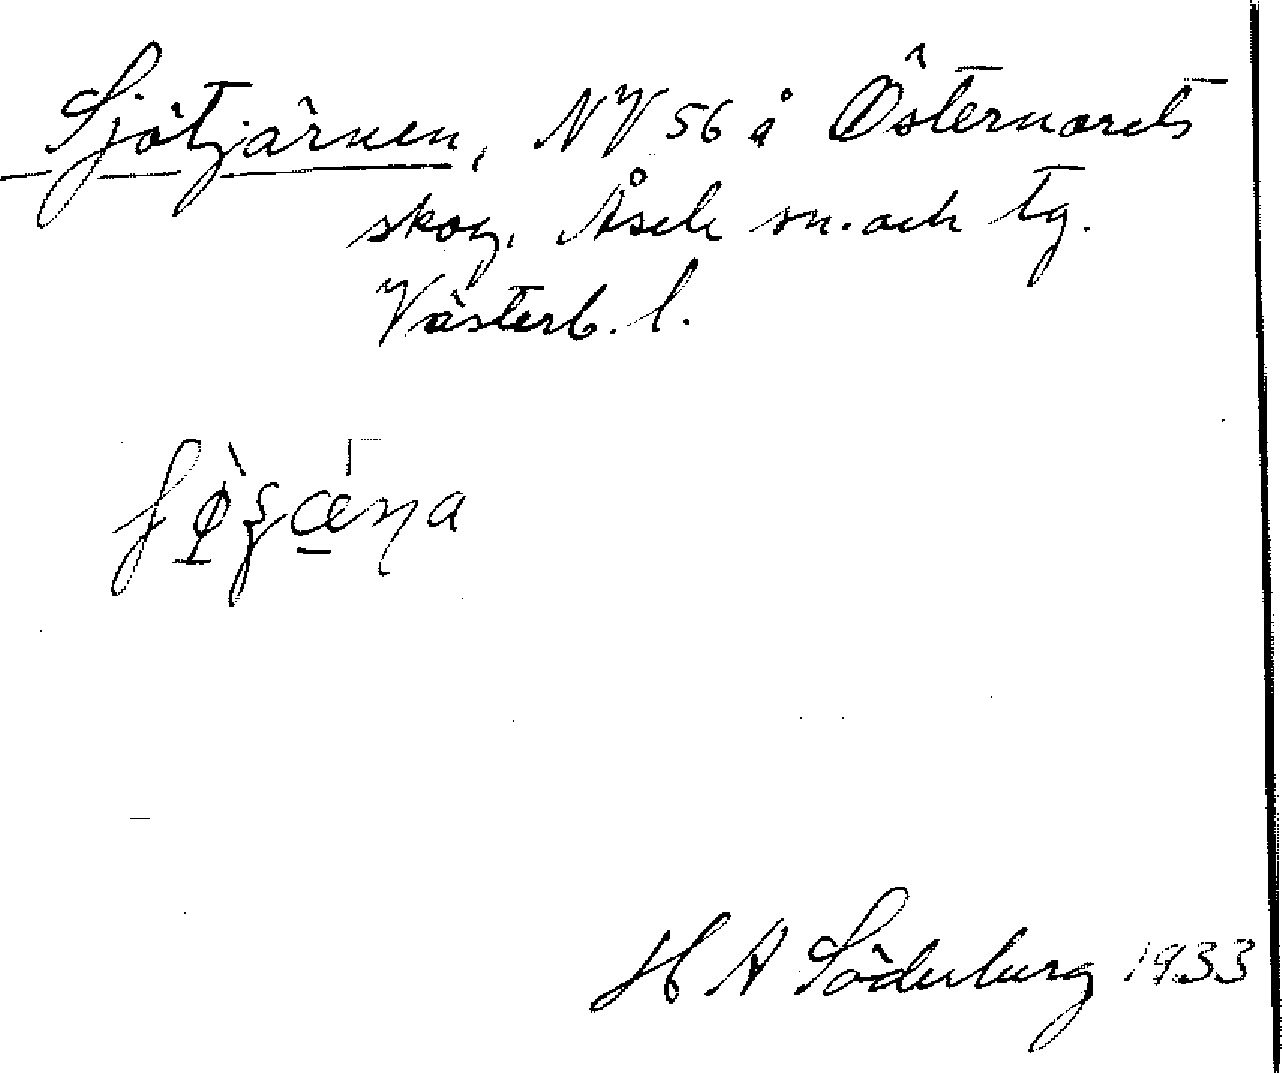 Sjötjärnen, NV 56 å Östernorets
skog, Åsele sn. och tg.
Västerb. l.
H A Söderberg 1933